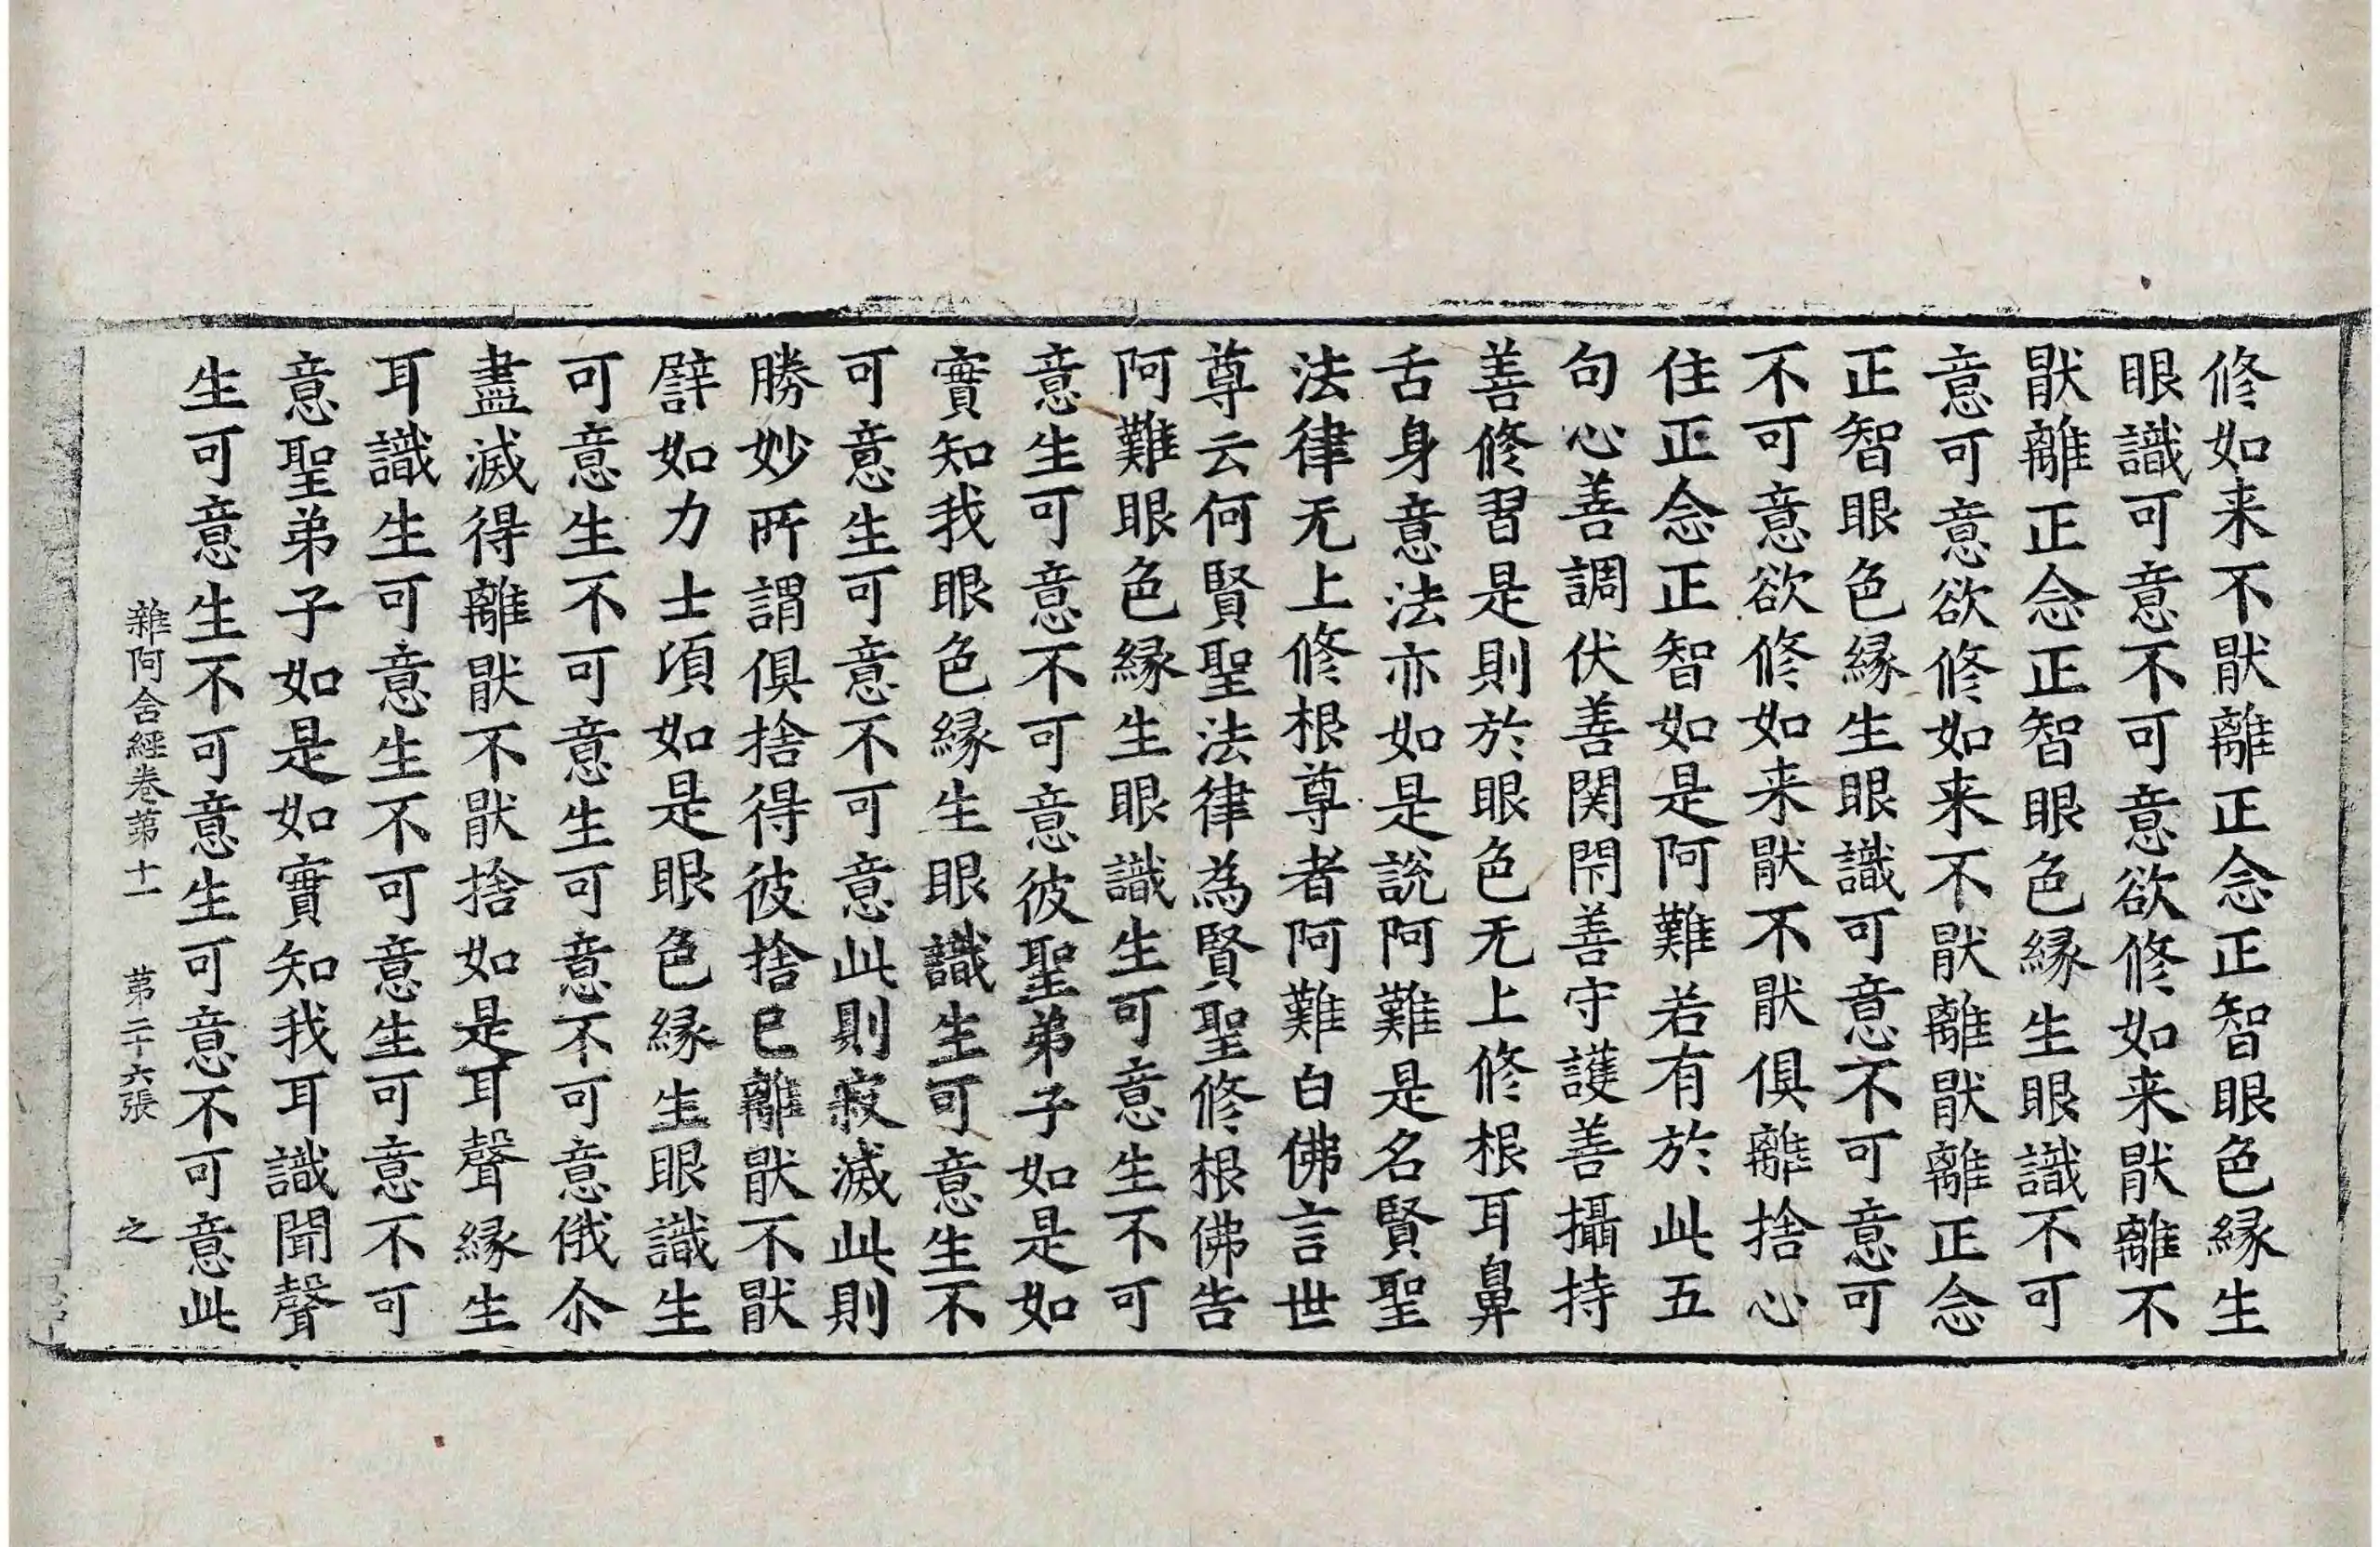 修如来不猒離正念正智眼色縁生
眼識可意不可意欲修如来猒離不
猒離正念正智眼色縁生眼識不可
意可意欲修如来不猒離猒離正念
正智眼色縁生眼識可意不可意可
不可意欲修如来猒不猒俱離捨心
住正念正智如是阿難若有於此五
句心善調伏善関閇善守護善攝持
善修習是則於眼色无上修根耳鼻
舌身意法亦如是說阿難是名賢聖
法律无上修根尊者阿難白佛言世
尊云何賢聖法律為賢聖修根佛告
阿難眼色縁生眼識生可意生不可
意生可意不可意彼聖弟子如是如
實知我眼色縁生眼識生可意生不
可意生可意不可意此則寂滅此則
勝妙所謂俱捨得彼捨已離猒不猒
譬如力士項如是眼色縁生眼識生
可意生不可意生可意不可意俄尒
盡滅得離猒不猒捨如是耳聲縁生
耳識生可意生不可意生可意不可
意聖弟子如是如實知我耳識聞聲
生可意生不可意生可意不可意此
雜阿含經卷第十一 第二十六張 之